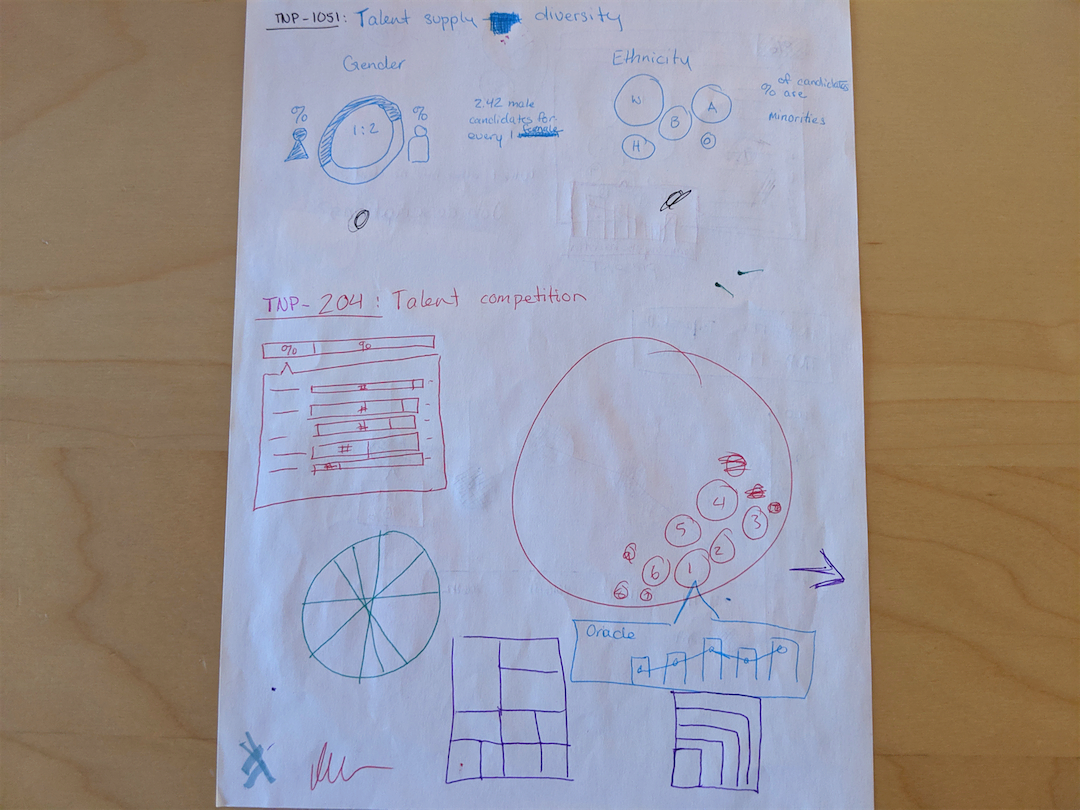 TNP-1051: Talent supply diversity
Gender
% %
1:2
2.42 male
candidates for
every 1 female
Ethnicity
W
A
B
H
O
of candidates
% are
minorities
TNP-204: Talent competition
% %
#
#
#
#
#
4
3
5
2
6
1
Oracle